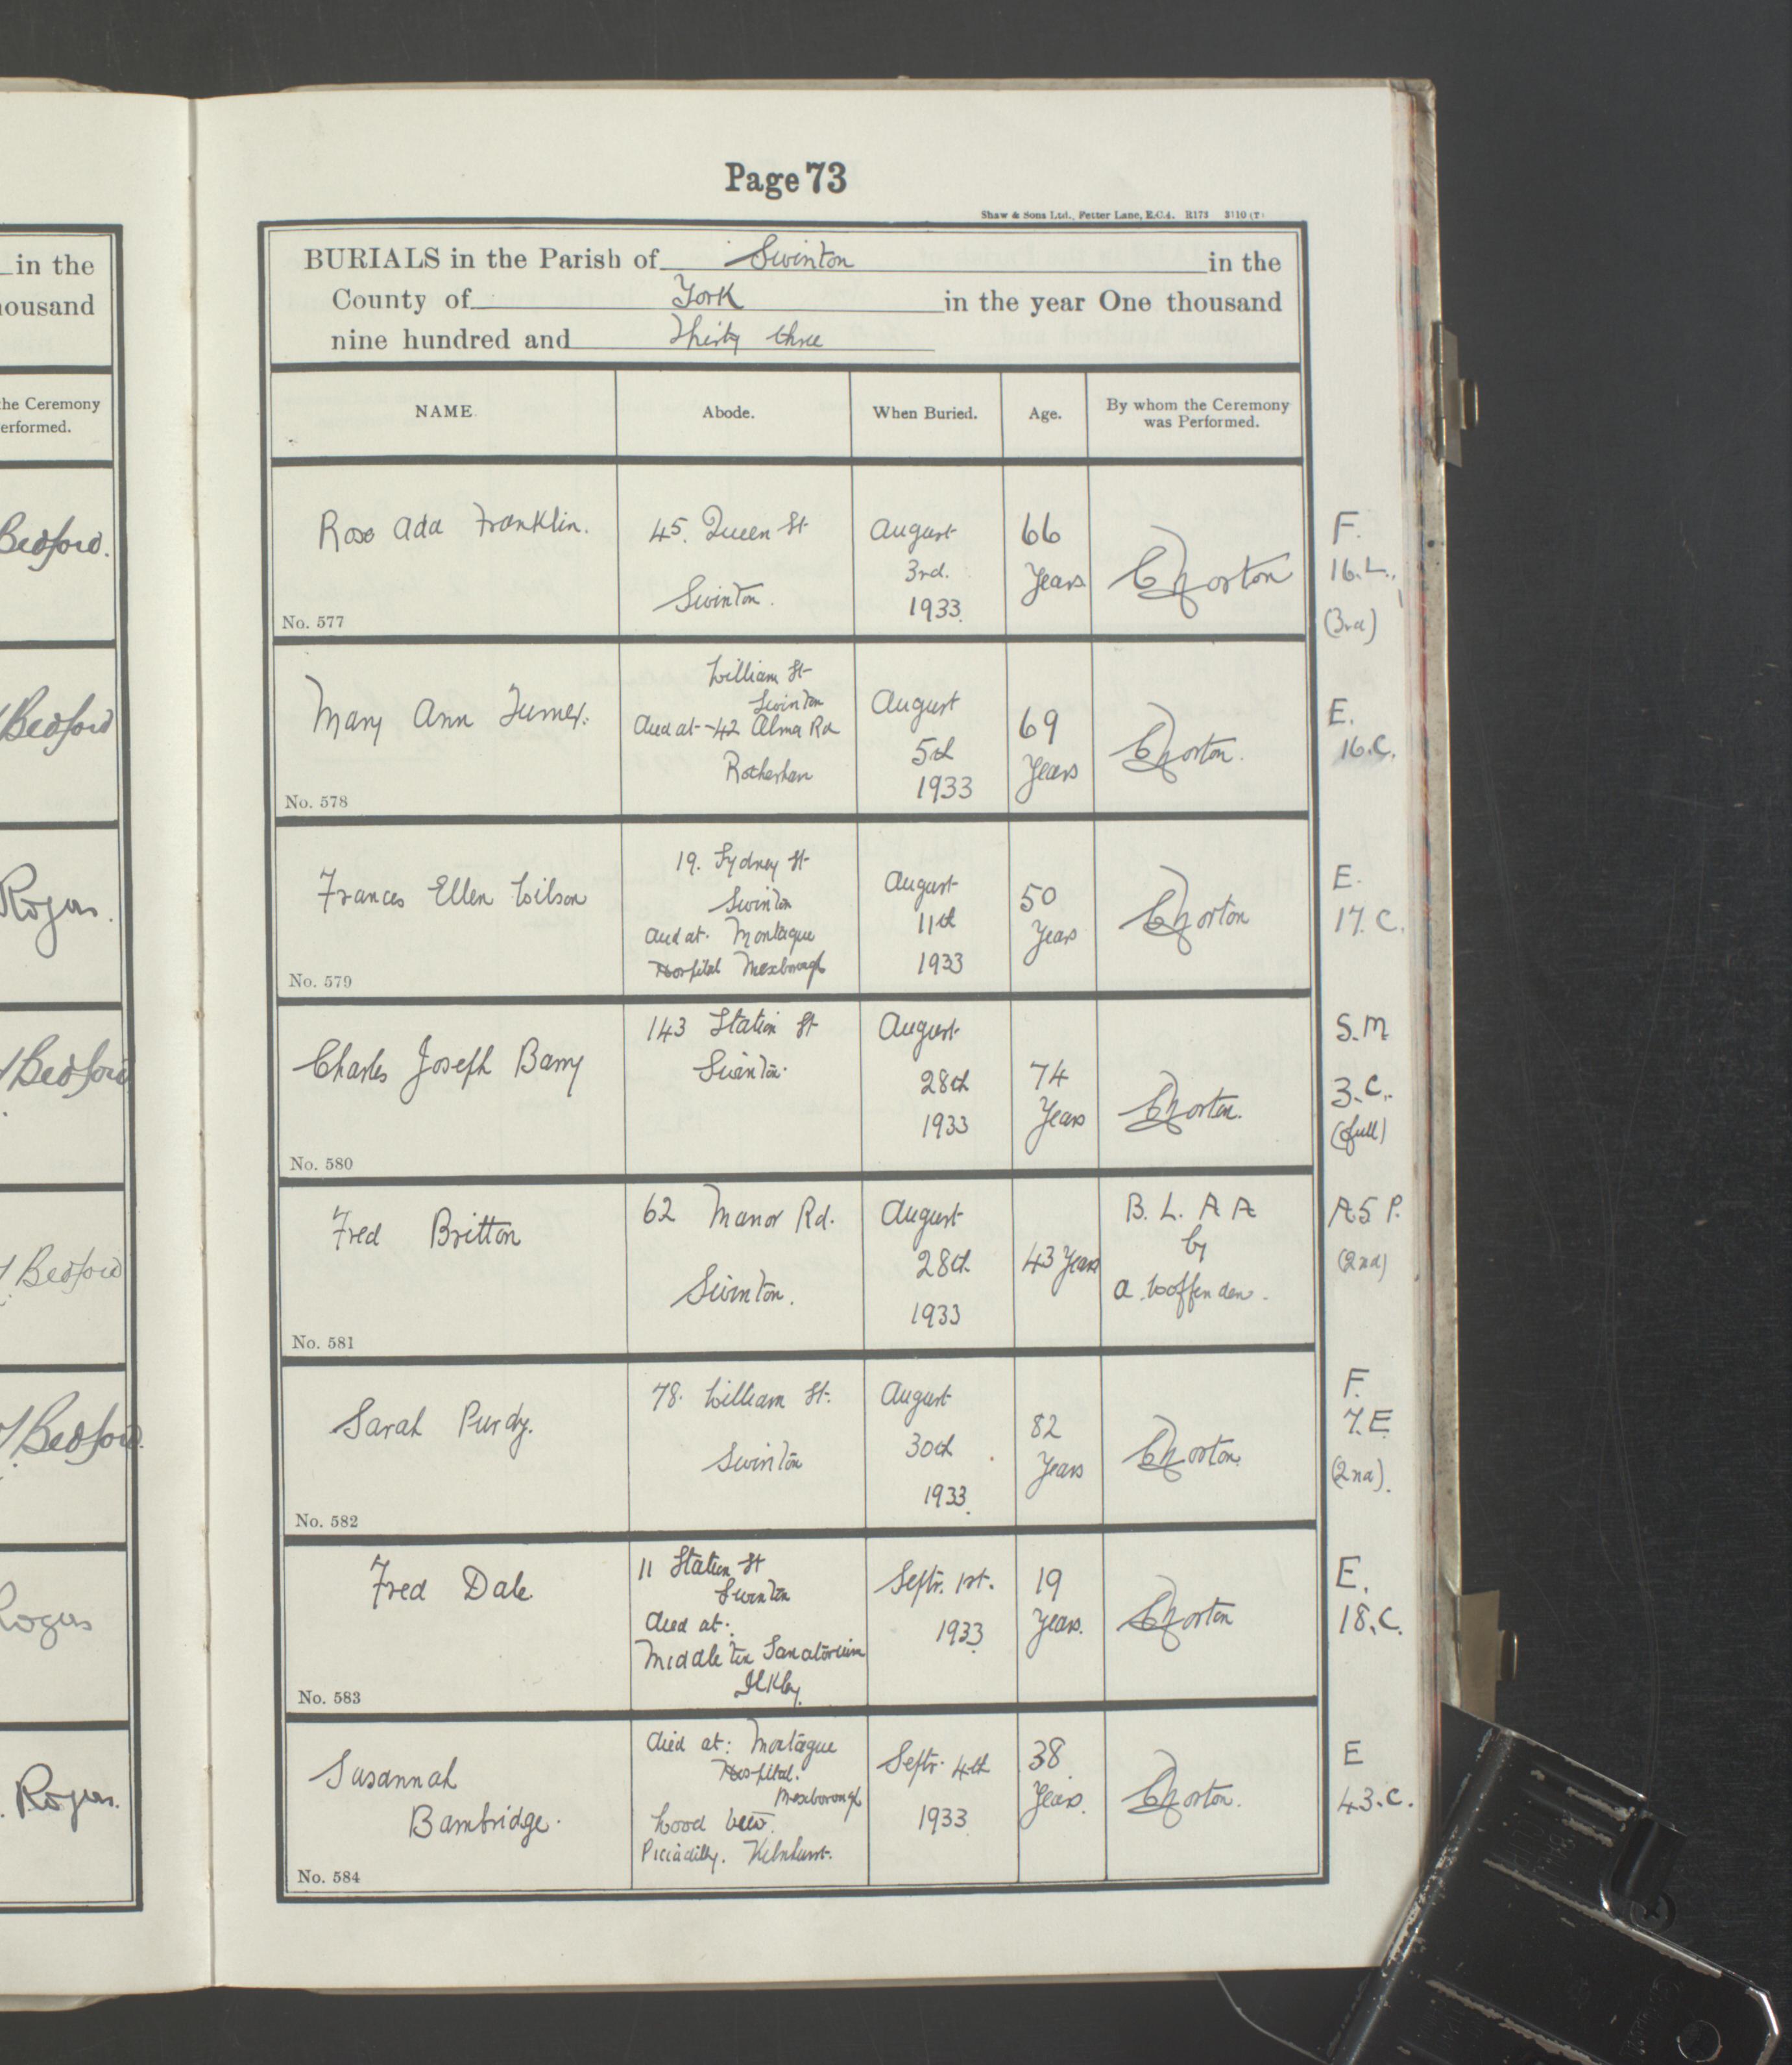 in the
ousand
the Ceremony
erformed.
Bedford.
Bedford
Rogers.
Bedford
Bedford
Bedford.
Rogers
Rogers.
Page 73
Shaw & Sons Ltd., Fetter Lane, E.C.4. R173 3110 (T)
BURIALS in the Parish of Swinton in the
County of York in the year One thousand
nine hundred and Thirty three
NAME Abode. When Buried. Age. By whom the Ceremony
was Performed.
Rose Ada Franklin.
45. Queen St
Swinton.
August
3rd.
1933.
66
Years
C Norton
F.
16.L.
(3rd)
No. 577
Mary Ann Turner.
William St
Swinton
died at 42 Alma Rd
Rotherham
August
5th
1933
69
Years
C Norton.
E.
16.C.
No. 578
Frances Ellen Wilson
19. Sydney St
Swinton
died at. Montague
Hospital Mexborough
August
11th
1933
50
Years
C Norton
E.
17. C.
No. 579
Charles Joseph Barry
143 Station St
Swinton.
August
28th
1933
74
Years
C Norton.
S.M
3.C.
(full)
No. 580
Fred Britton
62 Manor Rd.
Swinton.
August
28th
1933
43 Years
B. L. A A
by
A. Woffenden.
A 5 P.
(2nd)
No. 581
Sarah Purdy.
78. William St.
Swinton
August
30th
1933.
82
Years
C Norton.
F.
7.E
(2nd).
No. 582
Fred Dale.
11 Station St
Swinton
died at:
Middleton Sanatorium
Ilkley.
Septr. 1st.
1933.
19
Years.
C Norton
E.
18.C.
No. 583
Susannah
Bambridge.
died at: Montague
Hospital.
Mexborough
Wood View.
Piccadilly. Kilnhurst.
Septr. 4th
1933.
38.
Years.
C Norton.
E
43.C.
No. 584